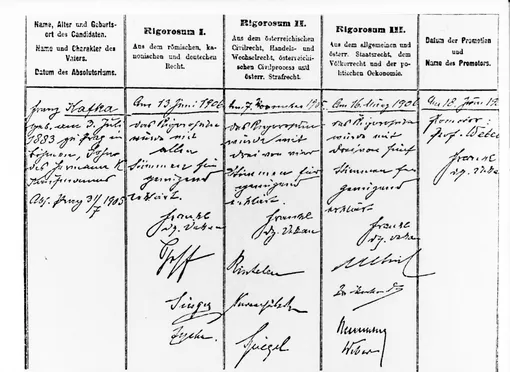 Name, Alter und Geburts-
ort des Candidaten.
Name und Charakter des
Vaters.
Datum des Absolutoriums.
Franz Kafka
geb. am 3. Juli
1883 zu Prag in
Böhmen, Sohn
des Hermann K.
Kaufmannes
Abs. Prag
Rigorosum I.
Aus dem römischen, ka-
nonischen und deutschen
Recht.
Am 13 Juni 1906
das Rigorosum
wurde mit
allen
Stimmen für
genügend
erklärt.
Frankl
dz. Dekan
Singer
Rigorosum II.
Aus dem österreichischen
Civilrecht, Handels- und
Wechselrecht, österreichi-
schen Civilprocess und
österr. Strafrecht.
Am 7. November 1905
das Rigorosum
wurde mit
drei von vier
Stimmen für
genügend
erklärt.
Frankl
dz. Dekan
Rintelen
Spiegel
Rigorosum III.
Aus dem allgemeinen und
österr. Staatsrecht, dem
Völkerrecht und der po-
litischen Oekonomie.
Am 16 März 1906
das Rigorosum
wurde mit
drei von fünf
Stimmen für
genügend
erklärt.
Frankl
dz. Dekan
Weber
Datum der Promotion
und
Name des Promotors.
Am 18. Juni 19
Promotor:
Prof. Weber
Frankl
dz. Dekan